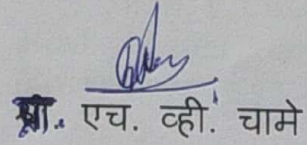 प्रा. एच. व्ही. चामे